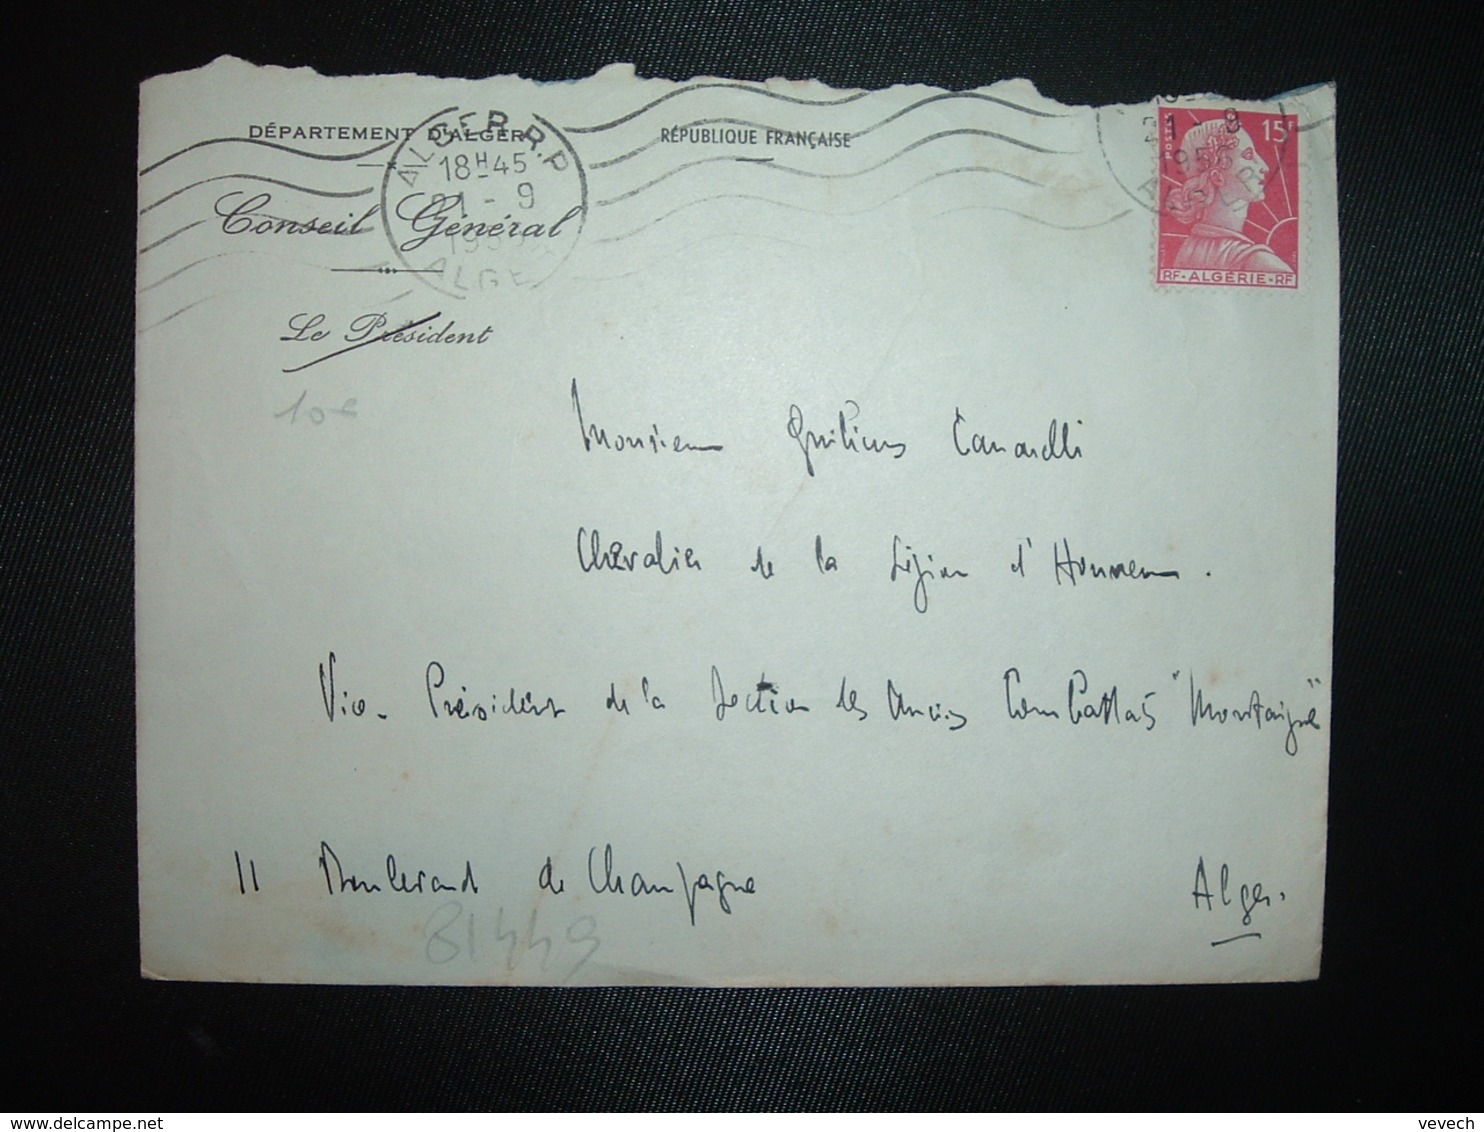 DÉPARTEMENT D'ALGER
RÉPUBLIQUE FRANÇAISE
Conseil Général
Le Président
ALGER R.P
18H45
1 - 9
ALGER
21 9
1955
POSTES
15F
RF - ALGÉRIE - RF
10€
Monsieur
Chevalier de la Légion d'Honneur.
Vice-Président de la Section des Anciens Combattants "Montaigne"
11 Boulevard de Champagne
Alger.
81449
vevech